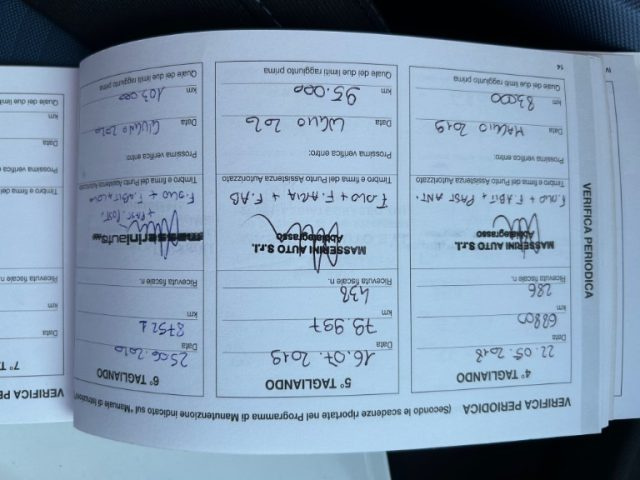 VERIFICA PERIODICA (Secondo le scadenze riportate nel Programma di Manutenzione indicato sul "Manuale di Istruzioni"
4° TAGLIANDO
Data 22.05.2018
km 68800
Ricevuta fiscale n. 286
MASSERINI AUTO S.r.l.
Abbiategrasso
F.OLIO + F.ABIT + PAST ANT.
Timbro e firma del Punto Assistenza Autorizzato
Prossima verifica entro:
Data MAGGIO 2019
km 83000
Quale dei due limiti raggiunto prima
14
5° TAGLIANDO
Data 16.07.2019
km 79.997
Ricevuta fiscale n. 438
MASSERINI AUTO S.r.l.
Abbiategrasso
F.OLIO + F.ARIA + F.AB
Timbro e firma del Punto Assistenza Autorizzato
Prossima verifica entro:
Data LUGLIO 2020
km 95.000
Quale dei due limiti raggiunto prima
6° TAGLIANDO
Data 25.06.2020
km 87521
Ricevuta fiscale n.
masseriniauto
+ PAST. POST.
Timbro e firma del Punto Assistenza
Prossima verifica entro:
Data GIUGNO
km 103.000
Quale dei due limiti raggiunto prima
VERIFICA
7° T
Data
km
Ricevuta fiscale n
Timbro e firma del
Prossima verifica e
Data
km
Quale dei due limi
VERIFICA PERIODICA